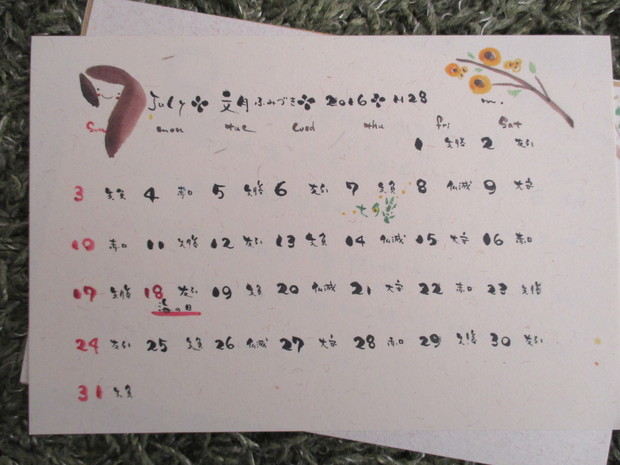 7 July 文月 ふみづき 2016 H28 m.
Sun mon tue wed thu fri sat
1 先勝 2 友引
3 先負 4 赤口 5 先勝 6 友引 7 先負 8 仏滅 9 大安
七夕
10 赤口 11 先勝 12 友引 13 先負 14 仏滅 15 大安 16 赤口
17 先勝 18 友引 19 先負 20 仏滅 21 大安 22 赤口 23 先勝
海の日
24 友引 25 先負 26 仏滅 27 大安 28 赤口 29 先勝 30 友引
31 先負